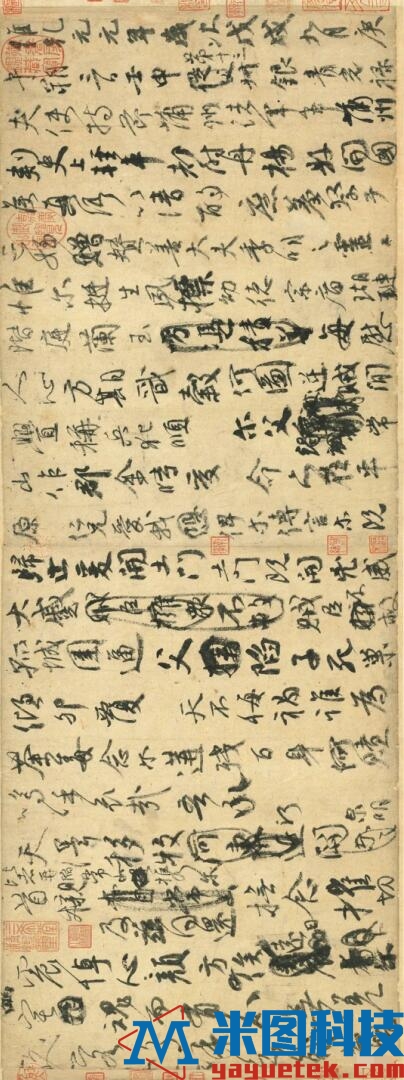 維乾元元年歲次戊戌九月庚
午朔三日壬申第十三叔銀青光祿
夫使持節蒲州諸軍事蒲州
刺史上輕車都尉丹楊縣開國
侯真卿以清酌庶羞祭于
亡姪贈贊善大夫季明之靈曰
惟爾挺生夙標幼德宗廟瑚璉
階庭蘭玉每慰
人心方期戩穀何圖逆賊閒
釁稱兵犯順爾父竭誠常
山作郡余時受命亦在平
原仁兄愛我俾爾傳言爾既
歸止爰開土門土門既開凶威
大蹙賊臣不救
孤城圍逼父陷子死巢
傾卵覆天不悔禍誰為
荼毒念爾遘殘百身何贖
嗚乎哀哉吾承
天澤移牧河關泉明
比者再陷常山攜爾
首櫬及茲同還撫念摧切
震悼心顏方俟
米图科技
www.yayuetek.com